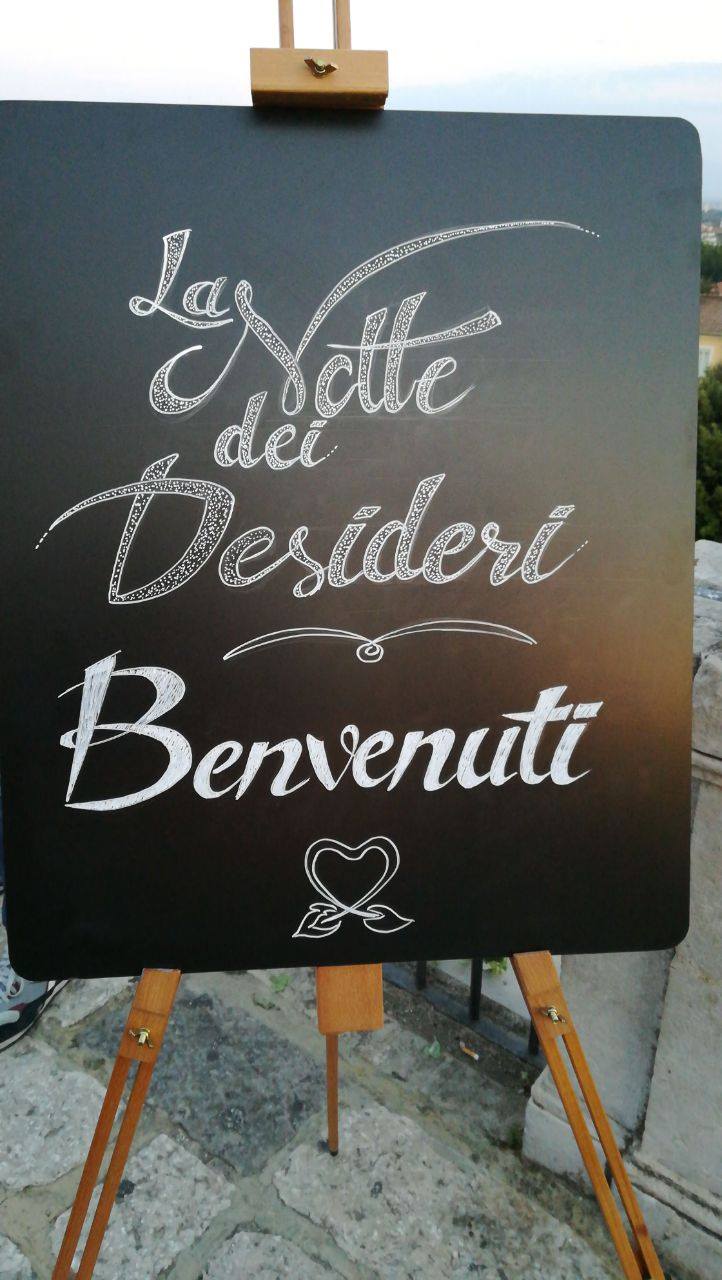 La Notte
dei
Desideri
Benvenuti